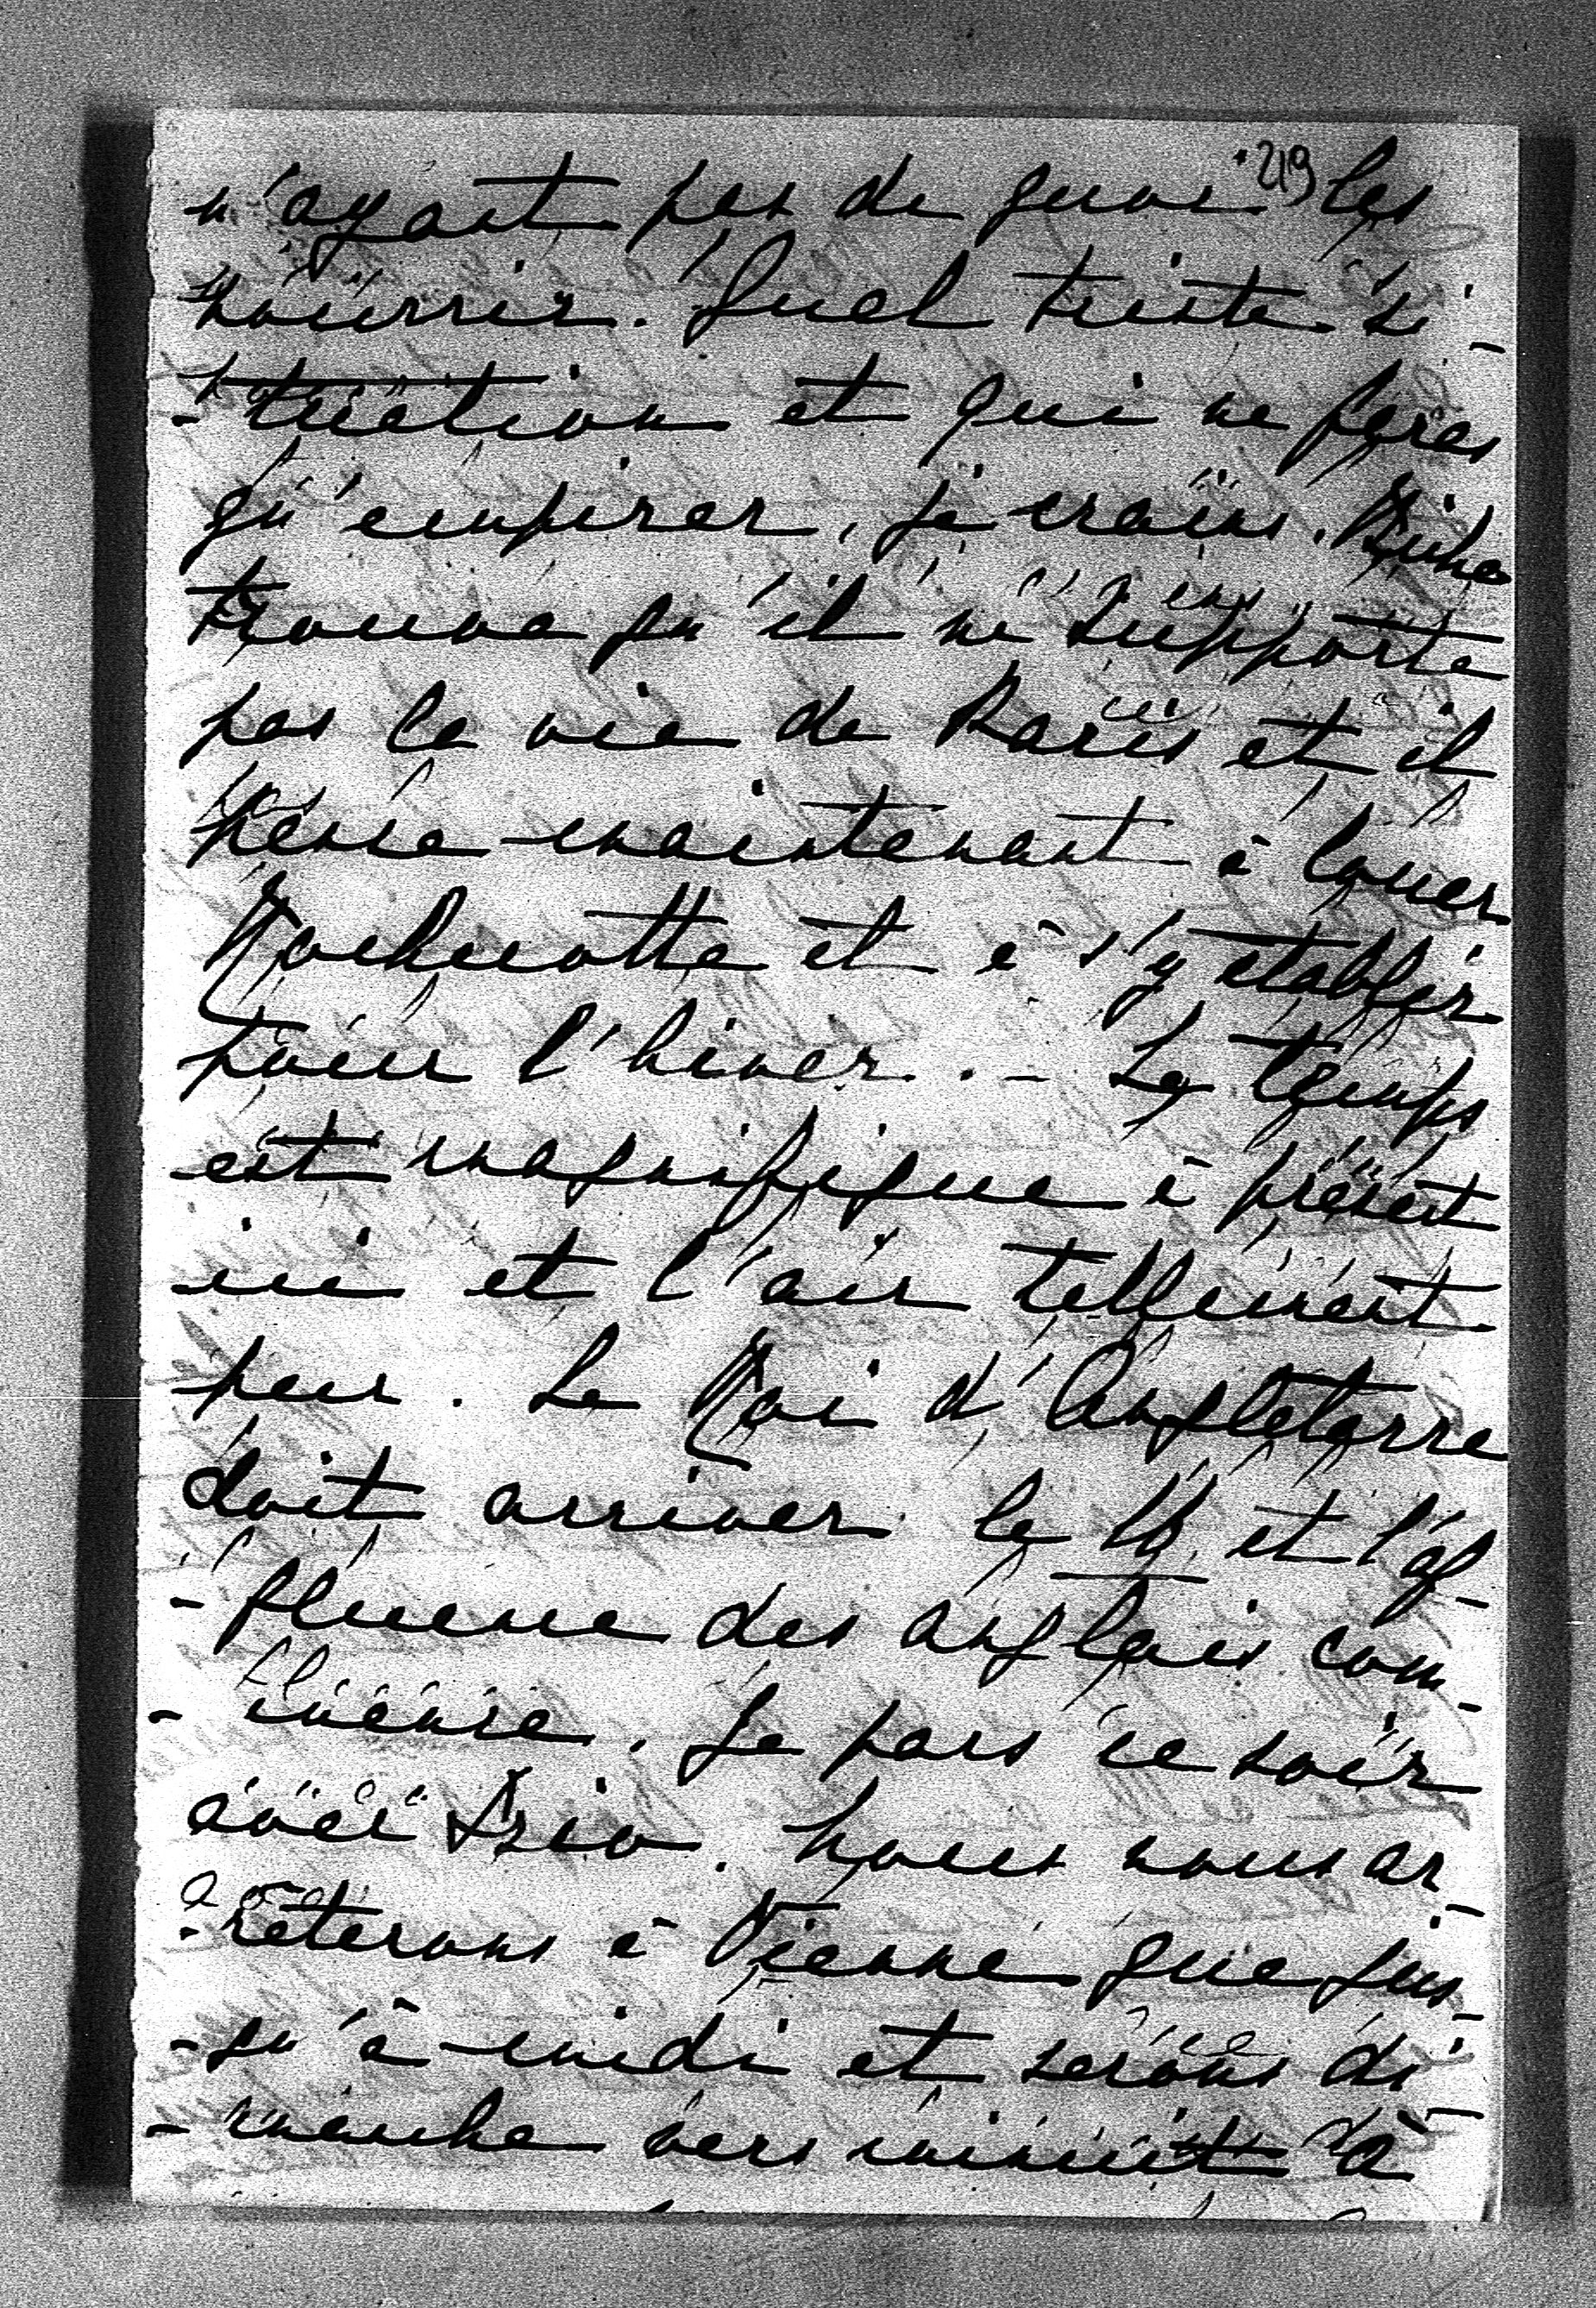 219
n'ayant pas de quoi les
nourrir. Quel triste si-
-tuation et qui ne feras
qu'empirer, je crains.
trouve qu'il ne supporte
pas la vie de Paris et il
pense maintenant à louer
Rochecotte et à s'y établir
pour l'hiver. - Le temps
est magnifique à présent
ici et l'air tellement
pur. Le Roi d'Angleterre
doit arriver le et l'af-
-fluence des anglais com-
-mence. Je pars ce soir
avec. Nous nous ar-
-rêterons à Vienne que jus-
-qu'à midi et serons di-
-manche vers minuit à